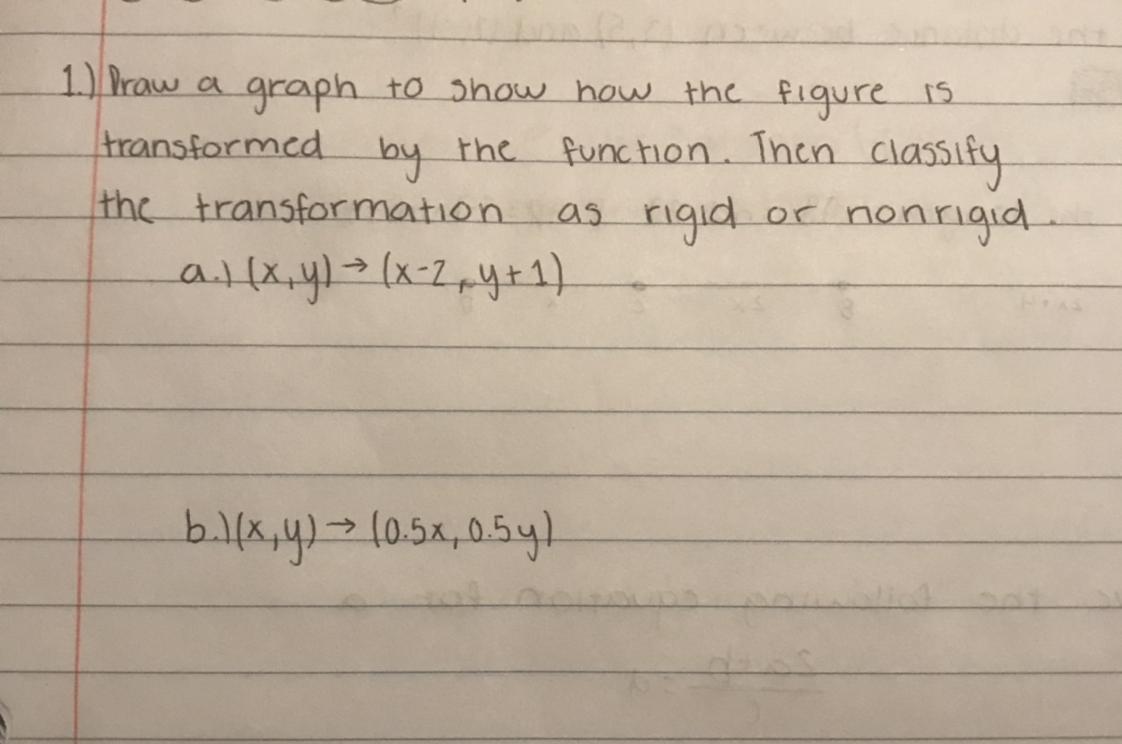 1.) Draw a graph to show how the figure is
transformed by the function. Then classify
the transformation as rigid or nonrigid.
a.) (x,y) → (x-2, y+1)
b.) (x,y) → (0.5x, 0.5y)